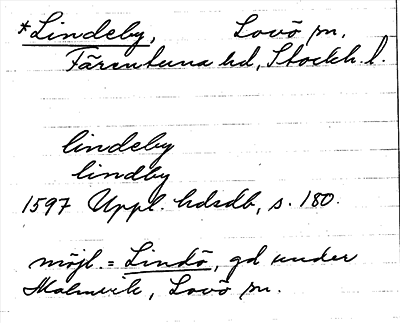 *Lindeby, Lovö sn,
Färentuna hd, Stockh. l.
lindeby
lindby
1597 Uppl. hdsdb, s. 180.
möjl. = Lindö, gd under
Malmvik, Lovö sn.